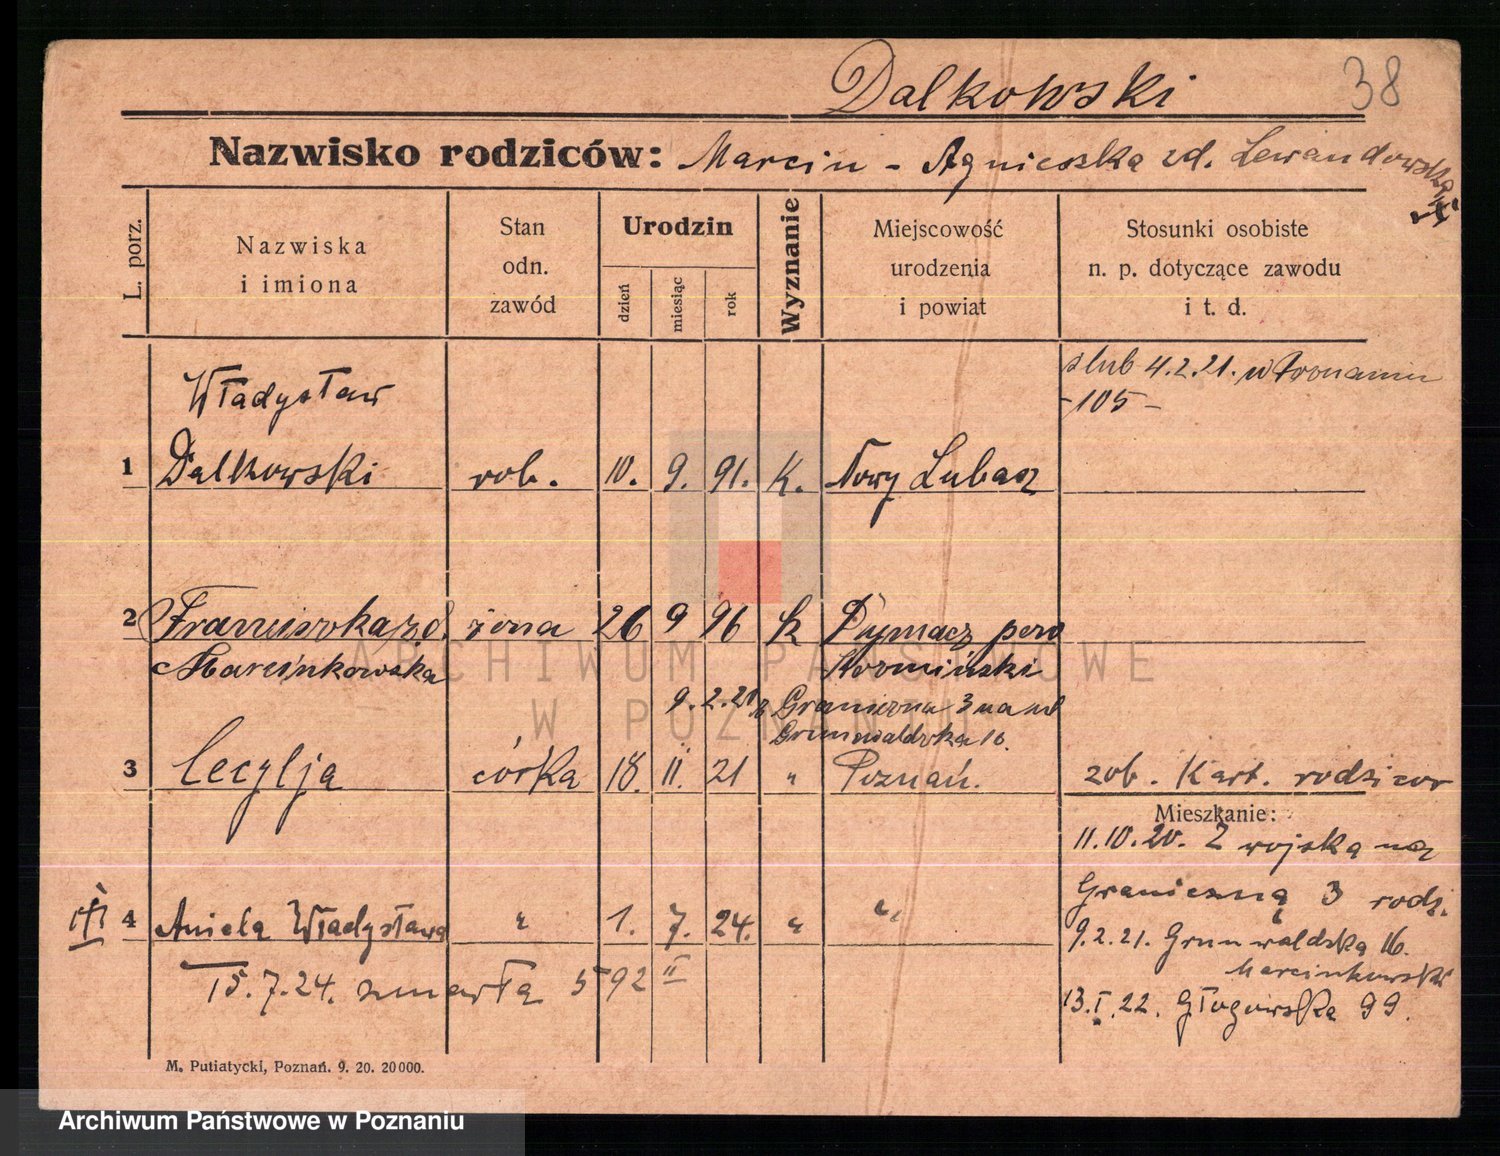 Dalkowski 38
Nazwisko rodziców: Marcin - Agnieszka zd. Lewandowska
L. porz.
Nazwiska i imiona
Stan odn. zawód
Urodzin
dzień miesiąc rok
Wyznanie
Miejscowość urodzenia i powiat
Stosunki osobiste n. p. dotyczące zawodu i t. d.
ślub 4.2.21. w Poznaniu
-105-
Władysław
1 Dalkowski rob. 10. 9. 91. K. Nowy Lubasz
2 Franciszka zd. żona 26 9 96 k Dymacz pow
Marcinkowska Kozmiński
9.2.21 z Graniczna 3 na
Grunwaldzka 16.
3 Cecylja córka 18. II. 21 " Poznań. zob. Kart. rodziców
Mieszkanie:
11.10.20. Z wojska na
Graniczną 3 rodz.
4 Aniela Władysława " 1. 7. 24. " "
9.2.21. Grunwaldzka 16.
Marcinkowski
15.7.24. zmarła 592 II
13.I.22. Głogowska 99.
M. Putiatycki, Poznań. 9. 20. 20000.
ARCHIWUM PAŃSTWOWE
W POZNANIU
Archiwum Państwowe w Poznaniu